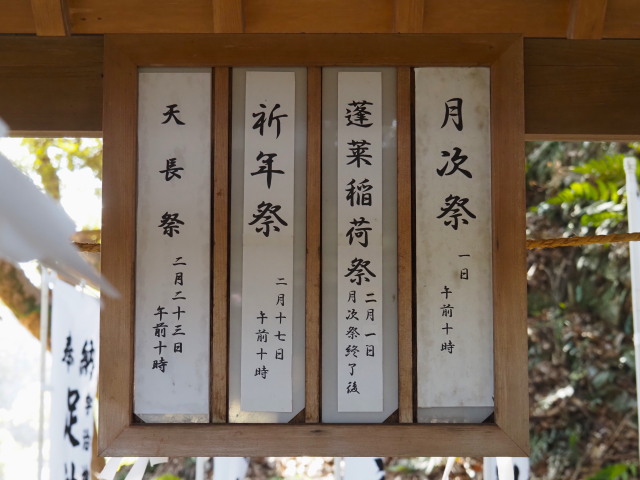 月次祭
一日
午前十時
蓬莱稲荷祭
二月一日
月次祭終了後
祈年祭
二月十七日
午前十時
天長祭
二月二十三日
午前十時
奉納